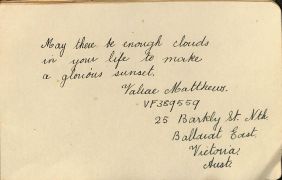 May there be enough clouds
in your life to make
a glorious sunset.
Valrae Matthews.
VF389559
25 Barkly St. Nth.
Ballarat East,
Victoria,
Aust.